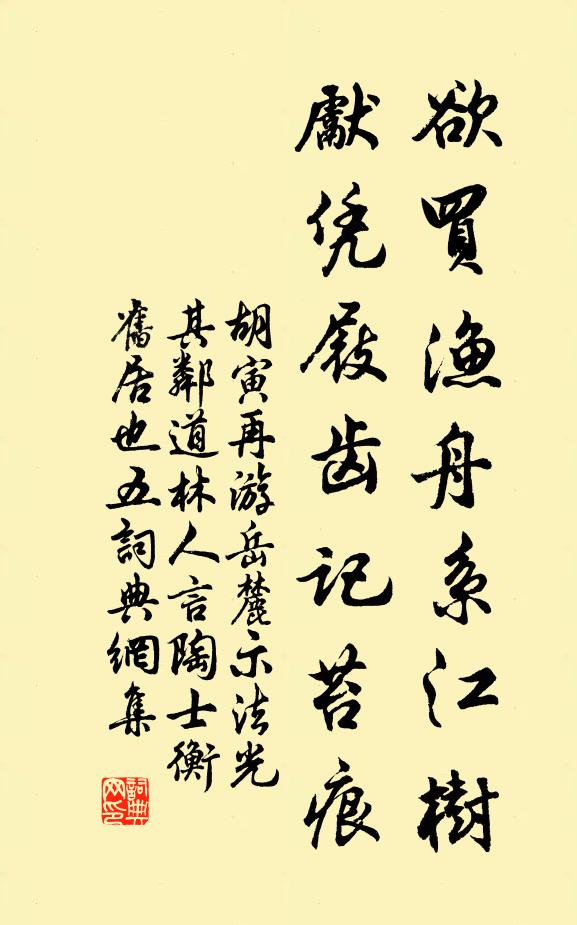 欲買漁舟系江樹
獻凭屐齿记苔痕
胡寅再游岳麓示法光
其鄰道林人言陶士衡
舊居也五詞典網集
詞典
网印